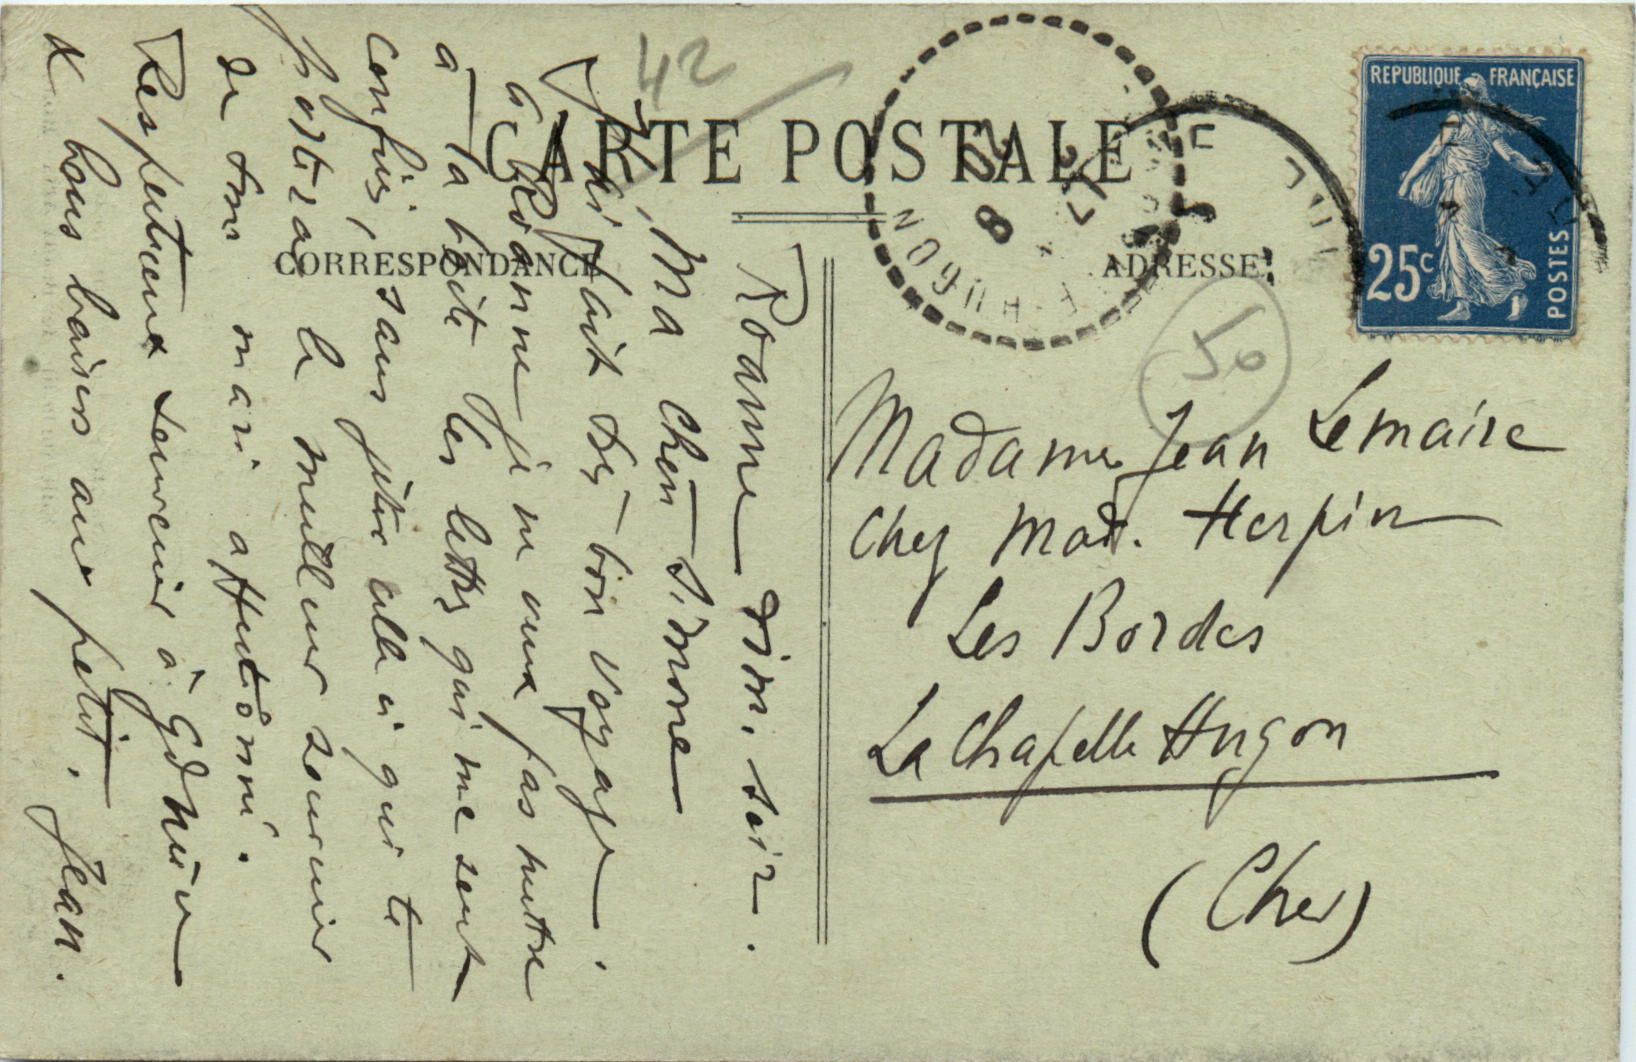 CARTE POSTALE
CORRESPONDANCE
ADRESSE
REPUBLIQUE FRANÇAISE
25c
POSTES
42
50
Roanne Dim. soir.
Ma chère Simone
J'ai fait très bon voyage.
à Roanne je ne veux pas mettre
à la boîte les lettres qui me sont
confiées, sans jeter celle ci qui te
portera le meilleur souvenir
de ton mari affectionné.
Respectueux souvenir à
& bons baisers aux petits. Jean.
Madame Jean Lemaire
Chez Mad. Herpin
Les Bordes
La Chapelle Hugon
(Cher)